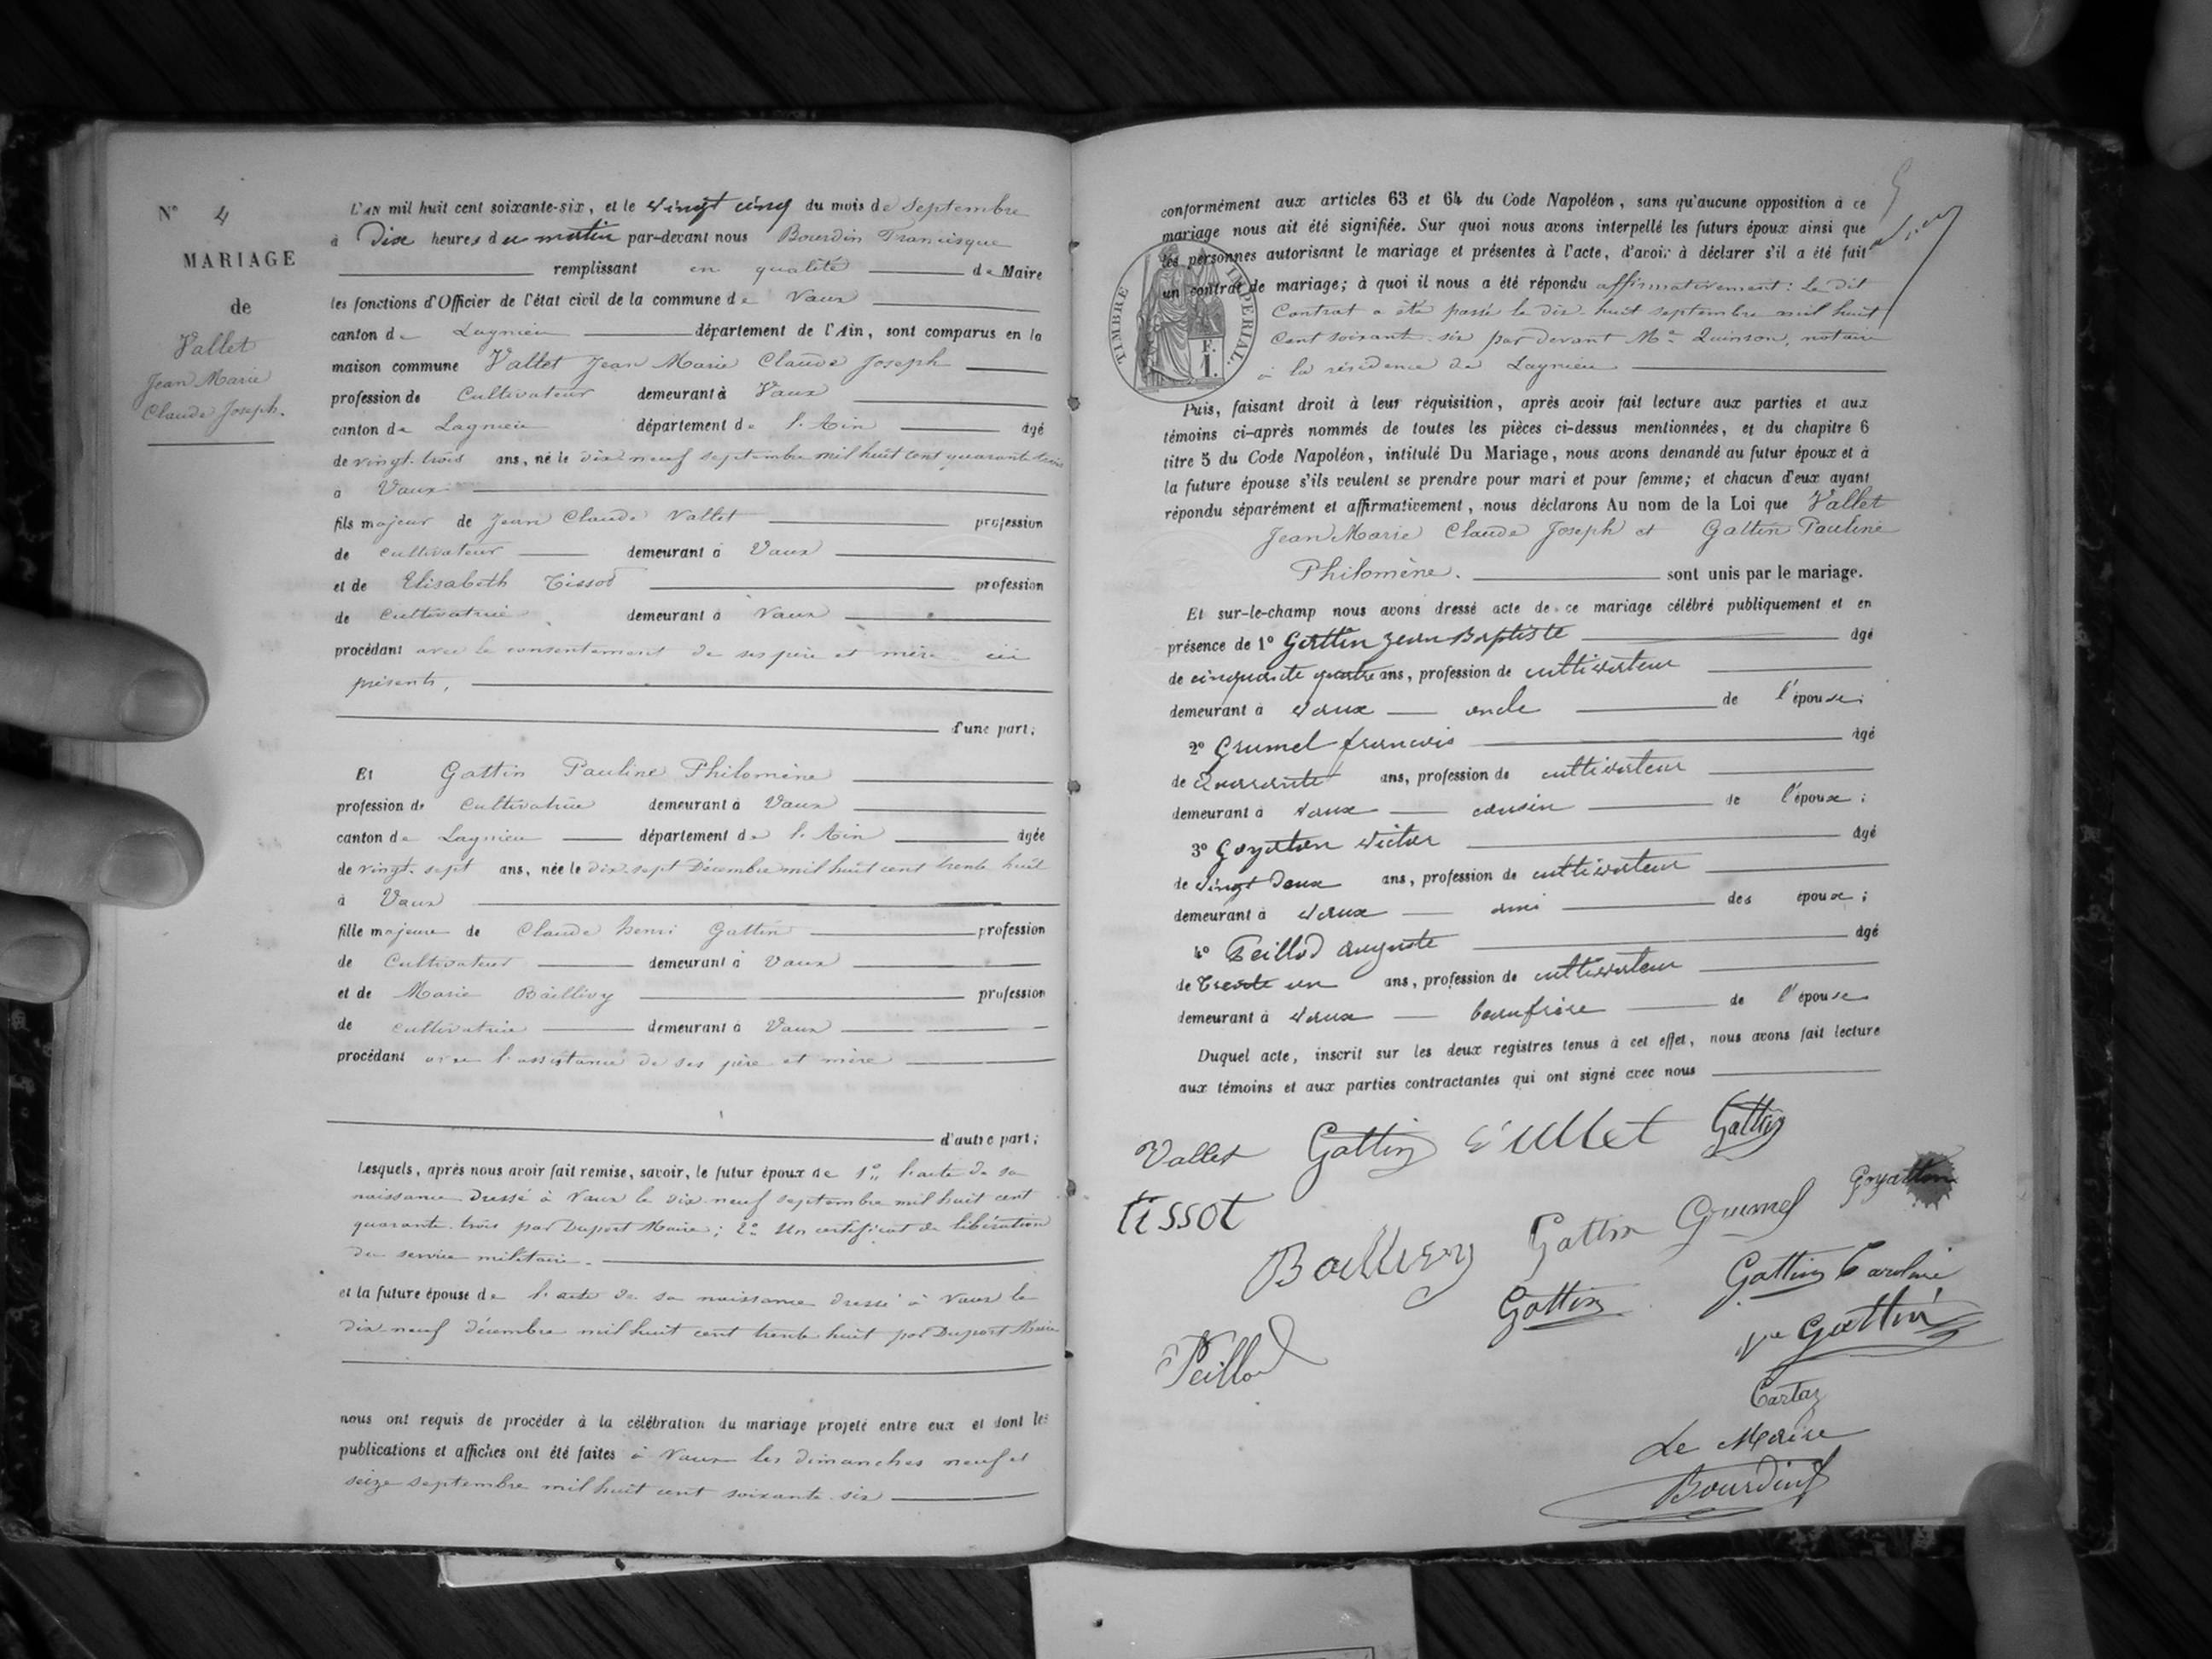 N° 4
MARIAGE
de
Vallet
Jean Marie
Claude Joseph.
L'AN mil huit cent soixante-six, et le vingt cinq du mois de Septembre
à Dix heures du matin par-devant nous Bourdin Francisque
remplissant en qualité de Maire
les fonctions d'Officier de l'état civil de la commune de Vaux
canton de Lagnieu département de l'Ain, sont comparus en la
maison commune Vallet Jean Marie Claude Joseph
profession de Cultivateur demeurant à Vaux
canton de Lagnieu département de l'Ain âgé
de vingt-trois ans, né le dix-neuf septembre mil huit cent quarante trois
à Vaux
fils majeur de Jean Claude Vallet profession
de cultivateur demeurant à Vaux
et de Elisabeth Tissot profession
de Cultivatrice demeurant à Vaux
procédant avec le consentement de ses père et mère ici
présents,
d'une part;
Et Gattin Pauline Philomène
profession de Cultivatrice demeurant à Vaux
canton de Lagnieu département de l'Ain âgée
de vingt-sept ans, née le dix-sept Décembre mil huit cent trente huit
à Vaux
fille majeure de Claude henri Gattin profession
de Cultivateur demeurant à Vaux
et de Marie Baillivy profession
de cultivatrice demeurant à Vaux
procédant avec l'assistance de ses père et mère
d'autre part;
Lesquels, après nous avoir fait remise, savoir, le futur époux de 1° l'acte de sa
naissance dressé à Vaux le dix-neuf septembre mil huit cent
quarante-trois par Duport Maire; 2° Un certificat de libération
du service militaire.
et la future épouse de l'acte de sa naissance dressé à Vaux le
dix-neuf décembre mil huit cent trente huit par Duport Maire
nous ont requis de procéder à la célébration du mariage projeté entre eux et dont les
publications et affiches ont été faites à Vaux les dimanches neuf et
seize septembre mil huit cent soixante-six
conformément aux articles 63 et 64 du Code Napoléon, sans qu'aucune opposition à ce
mariage nous ait été signifiée. Sur quoi nous avons interpellé les futurs époux ainsi que
les personnes autorisant le mariage et présentes à l'acte, d'avoir à déclarer s'il a été fait
un contrat de mariage; à quoi il nous a été répondu affirmativement: Le dit
Contrat a été passé le dix-huit septembre mil huit
Cent soixante-six par devant Me Quinson, notaire
à la résidence de Lagnieu
TIMBRE IMPERIAL.
F.
1.
Puis, faisant droit à leur réquisition, après avoir fait lecture aux parties et aux
témoins ci-après nommés de toutes les pièces ci-dessus mentionnées, et du chapitre 6
titre 5 du Code Napoléon, intitulé Du Mariage, nous avons demandé au futur époux et à
la future épouse s'ils veulent se prendre pour mari et pour femme; et chacun d'eux ayant
répondu séparément et affirmativement, nous déclarons Au nom de la Loi que Vallet
Jean Marie Claude Joseph et Gattin Pauline
Philomène. sont unis par le mariage.
Et sur-le-champ nous avons dressé acte de ce mariage célébré publiquement et en
présence de 1° Gattin Jean Baptiste âgé
de cinquante quatre ans, profession de cultivateur
demeurant à vaux oncle de l'épouse;
2° Grumel francois âgé
de Quarante ans, profession de cultivateur
demeurant à vaux cousin de l'époux;
3° Goyatton victor âgé
de vingt Deux ans, profession de cultivateur
demeurant à vaux ami des époux;
4° Peillod auguste âgé
de Trente un ans, profession de cultivateur
demeurant à vaux beaufrère de l'épouse
Duquel acte, inscrit sur les deux registres tenus à cet effet, nous avons fait lecture
aux témoins et aux parties contractantes qui ont signé avec nous
Vallet Gattin Vallet Gattin
tissot Goyatton
Baillivy Gattin Grumel
Gattin Gattin Caroline
Peillod Gattin
Cartaz
Le Maire
Bourdin